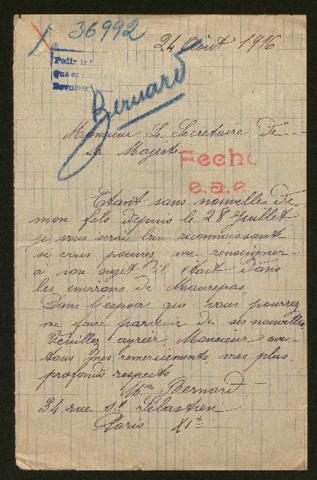 36992
24 Août 1916
Pedir inf
Que se
Devolver
Bernard
Monsieur Le Secrétaire de
sa Majesté
Fecho
e.a.e
Etant sans nouvelles de
mon fils depuis le 28 Juillet
je vous serai bien reconnaissant
si vous pouvez me renseigner
à son sujet il était dans
les environs de Maurepas.
Dans l'espoir que vous pourrez
me faire parvenir de ses nouvelles
Veuillez agréer, Monsieur avec
tous mes remerciements, mes plus
profonds respects
Mme Bernard
34 rue St Sébastien
Paris XIe